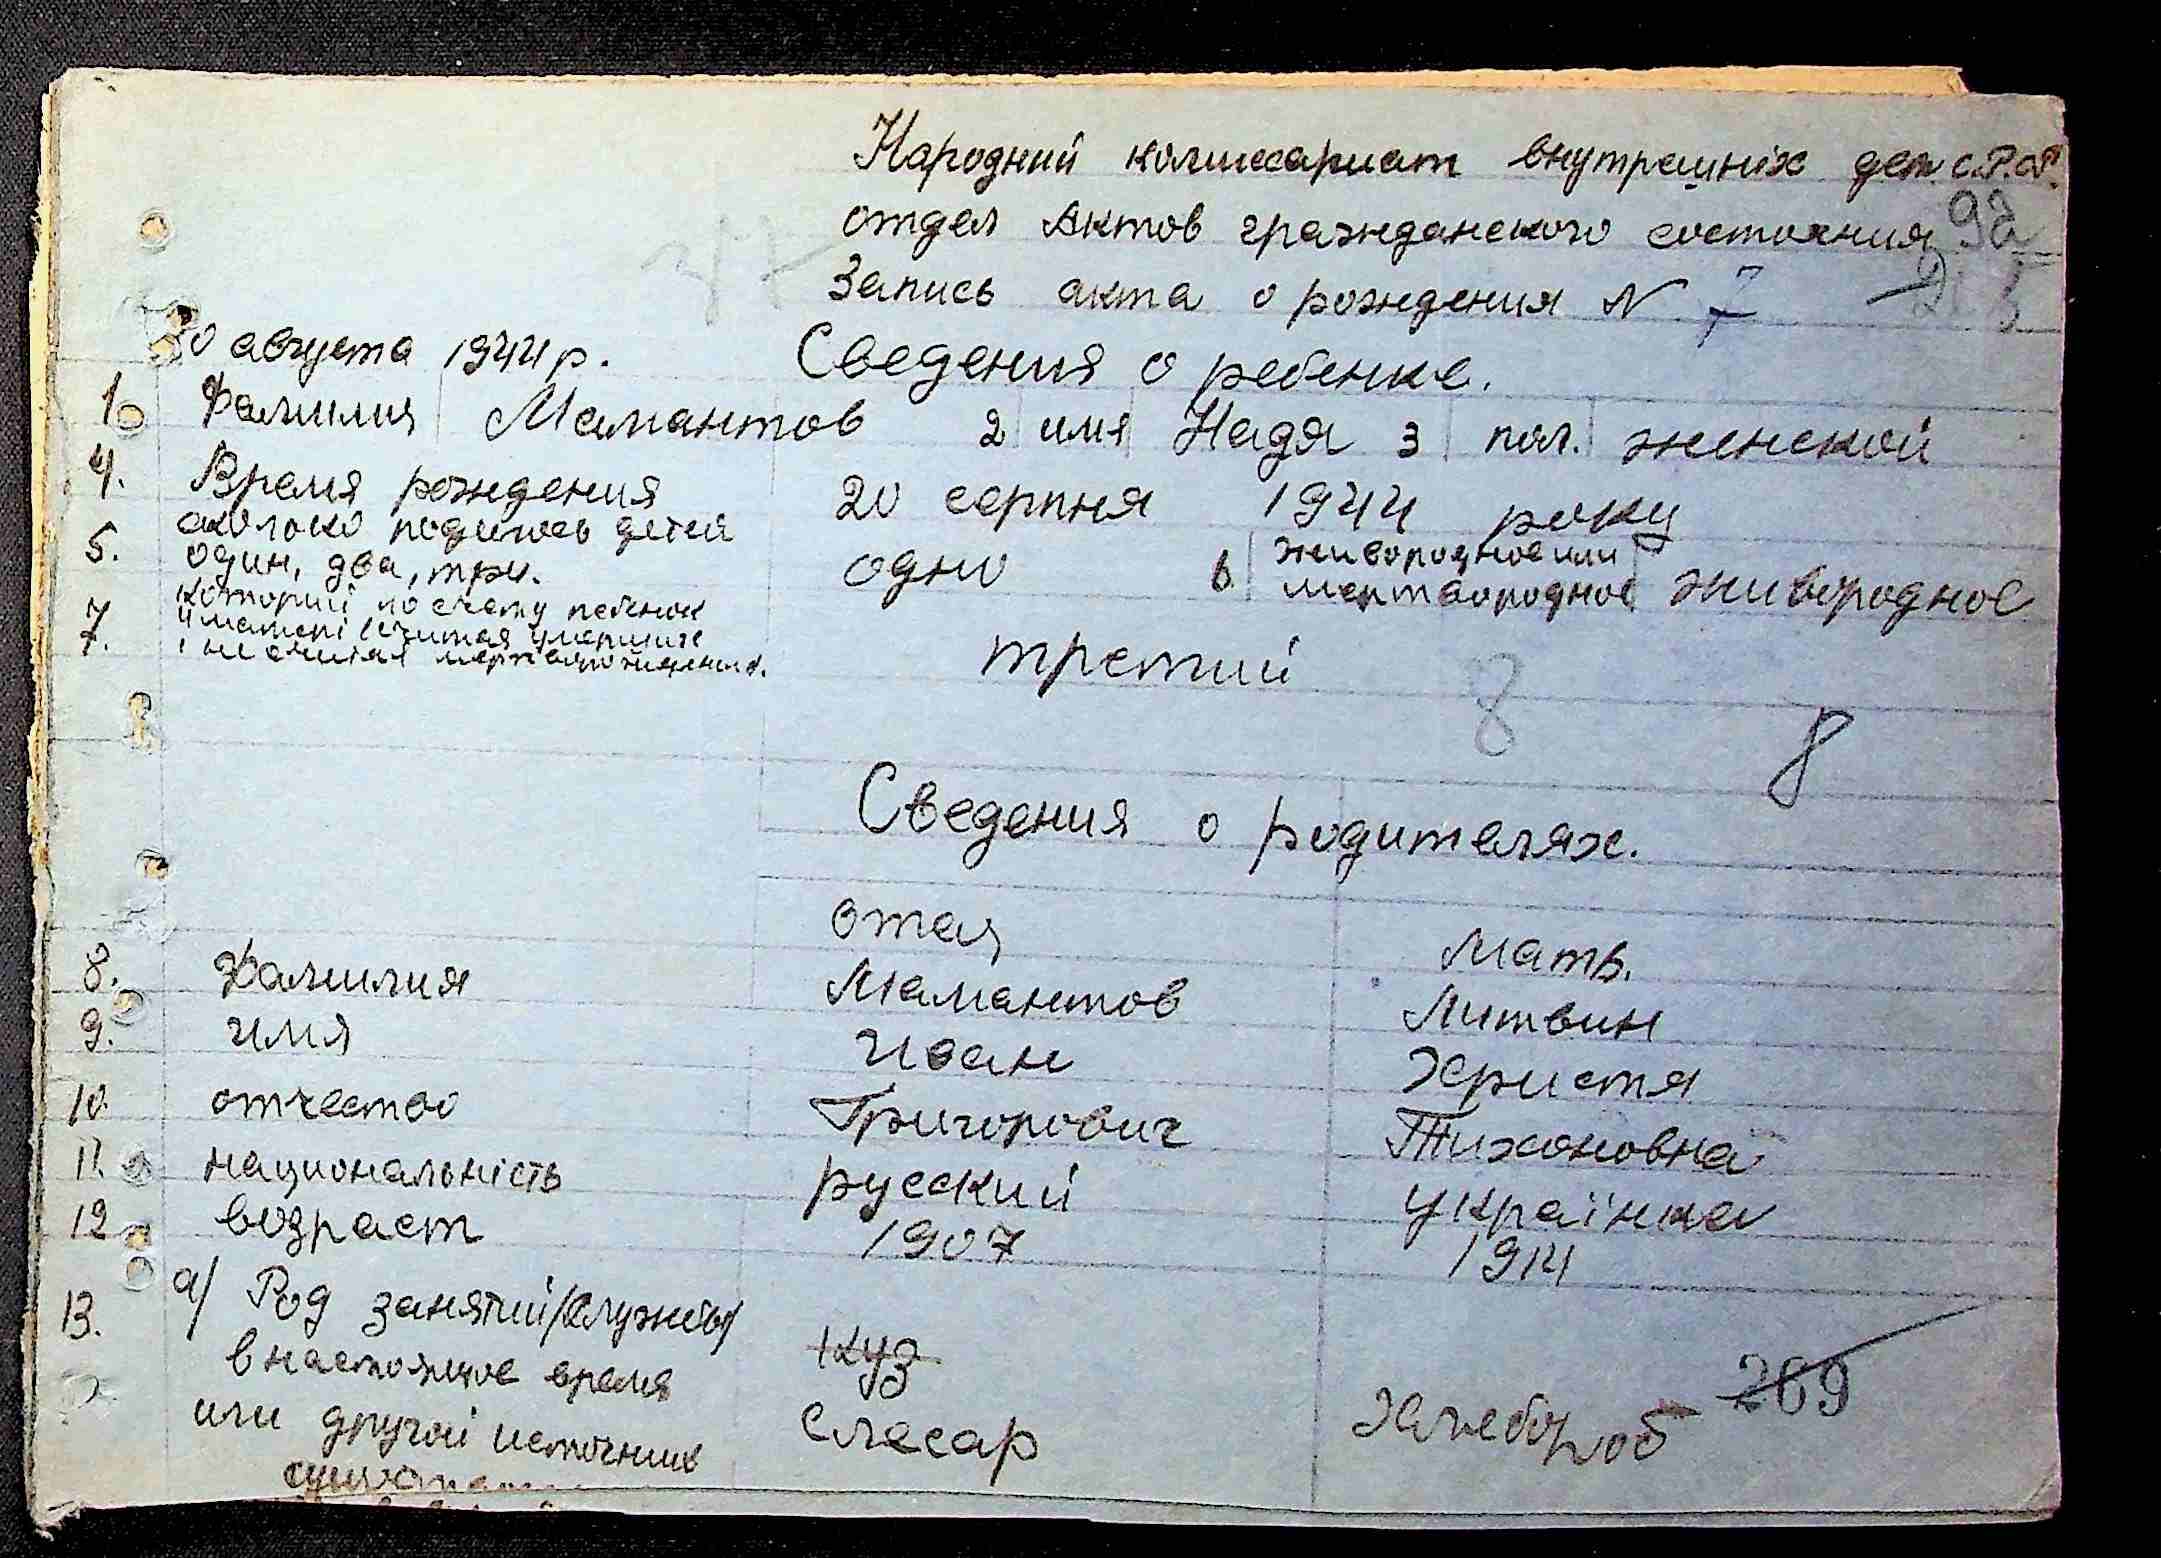 Народний комиссариат внутрешніх дел С.Р.С.Р.
отдел Актов гражданского состояния 92
Запись акта о рождения N 7
30 августа 1944 р. Сведения о ребенке.
1. Фамилия Мамантов 2 имя Надя 3 пол. женской
4. Время рождения 20 серпня 1944 року
5. сколько родилось детей один, два, три. одно 6. живородное или мертвородное живородное
7. которий по счету ребенок
у матері считая умерших
і не считая мертворождених. третий
8 8
Сведения о родителях.
отец мать.
8. Фамилия Мамантов Литвин
9. имя Иван Христя
10. отчество Григорович Тихоновна
11. национальність русский українка
12 возраст 1907 1914
13. а/ Род занятий/службы/
в настоящое время куз
или другой источник слесар хлебороб 269